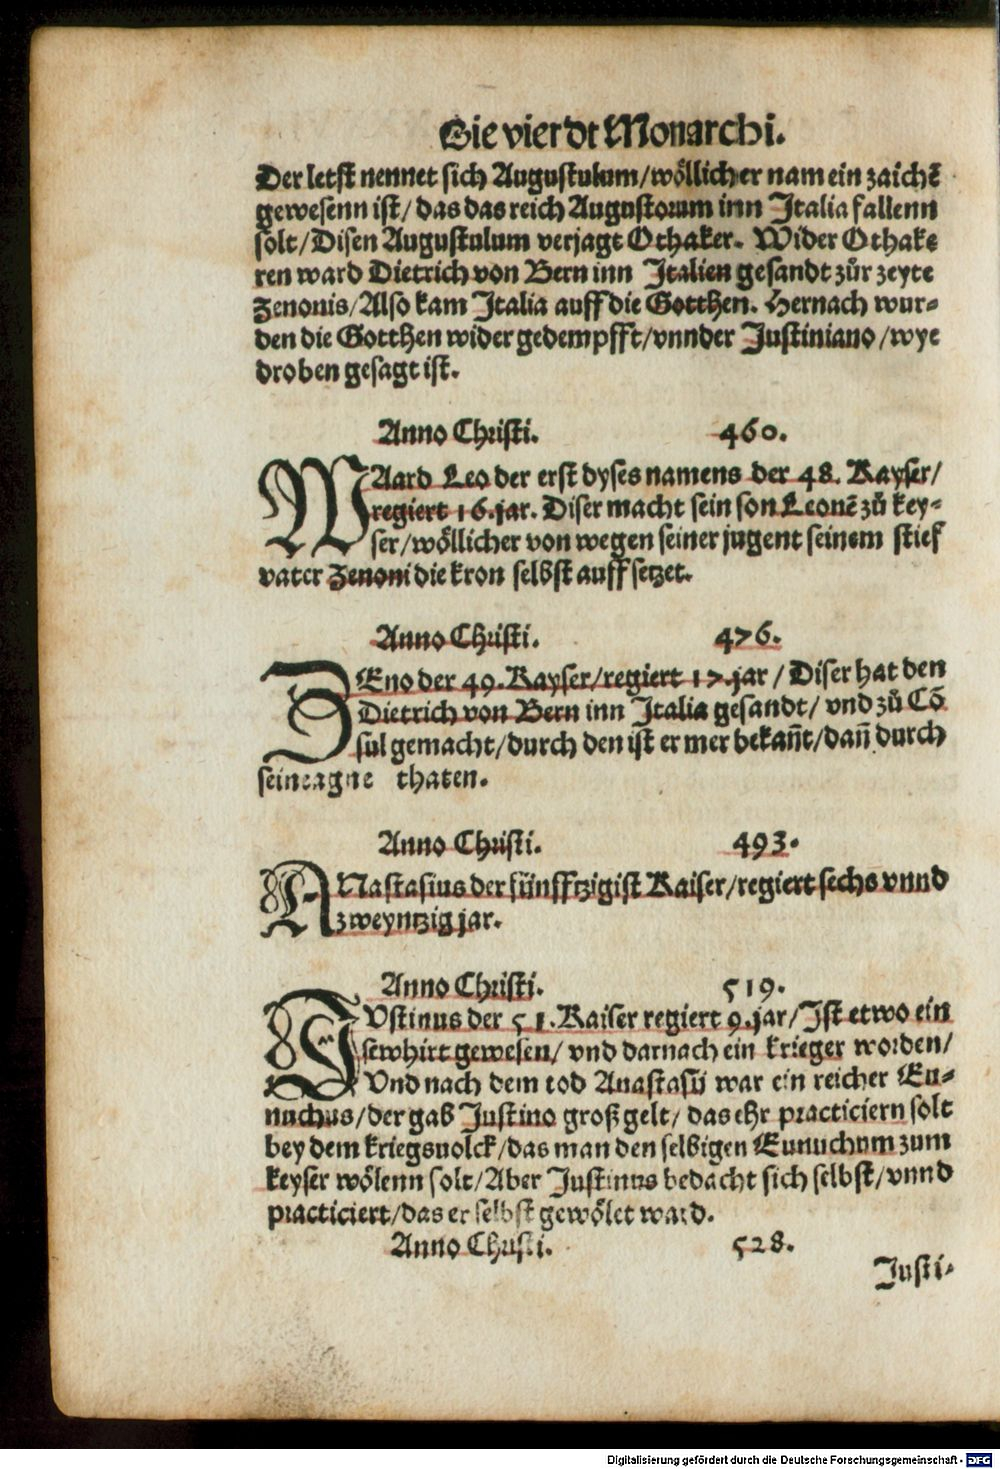 Die vierdt Monarchi.
Der letst nennet sich Augustulum/wöllicher nam ein zaichē
gewesenn ist/ das das reich Augustorum inn Italia fallenn
solt/Disen Augustulum verjagt Othaker. Wider Othake
ren ward Dietrich von Bern inn Italien gesandt zůr zeyte
Zenonis/Also kam Italia auff die Gotthen. Hernach wur-
den die Gotthen wider gedempfft/vnnder Justiniano/wye
droben gesagt ist.
Anno Christi. 460.
WAard Leo der erst dyses namens der 48. Kayser/
regiert 16.jar. Diser macht sein son Leonē zů key-
ser/wöllicher von wegen seiner jugent seinem stief
vater Zenoni die kron selbst auff setzet.
Anno Christi. 476.
ZEno der 49. Kayser/regiert 17.jar / Diser hat den
Dietrich von Bern inn Italia gesandt/ vnd zů Cō
sul gemacht/durch den ist er mer bekañt/dañ durch
sein eagne thaten.
Anno Christi. 493.
ANastasius der fünfftzigist Kaiser/regiert sechs vnnd
zweyntzig jar.
Anno Christi. 519.
IVstinus der 51. Kaiser regiert 9.jar/Ist etwo ein
sewhirt gewesen/ vnd darnach ein krieger worden/
Vnd nach dem tod Anastasij war ein reicher Eu-
nuchus/der gab Justino groß gelt/ das ehr practiciern solt
bey dem kriegsuolck/das man den selbigen Eunuchum zum
keyser wölenn solt/Aber Justinus bedacht sich selbst/vnnd
practiciert/das er selbst gewölet ward.
Anno Christi. 528.
Justi-
Digitalisierung gefördert durch die Deutsche Forschungsgemeinschaft - DFG